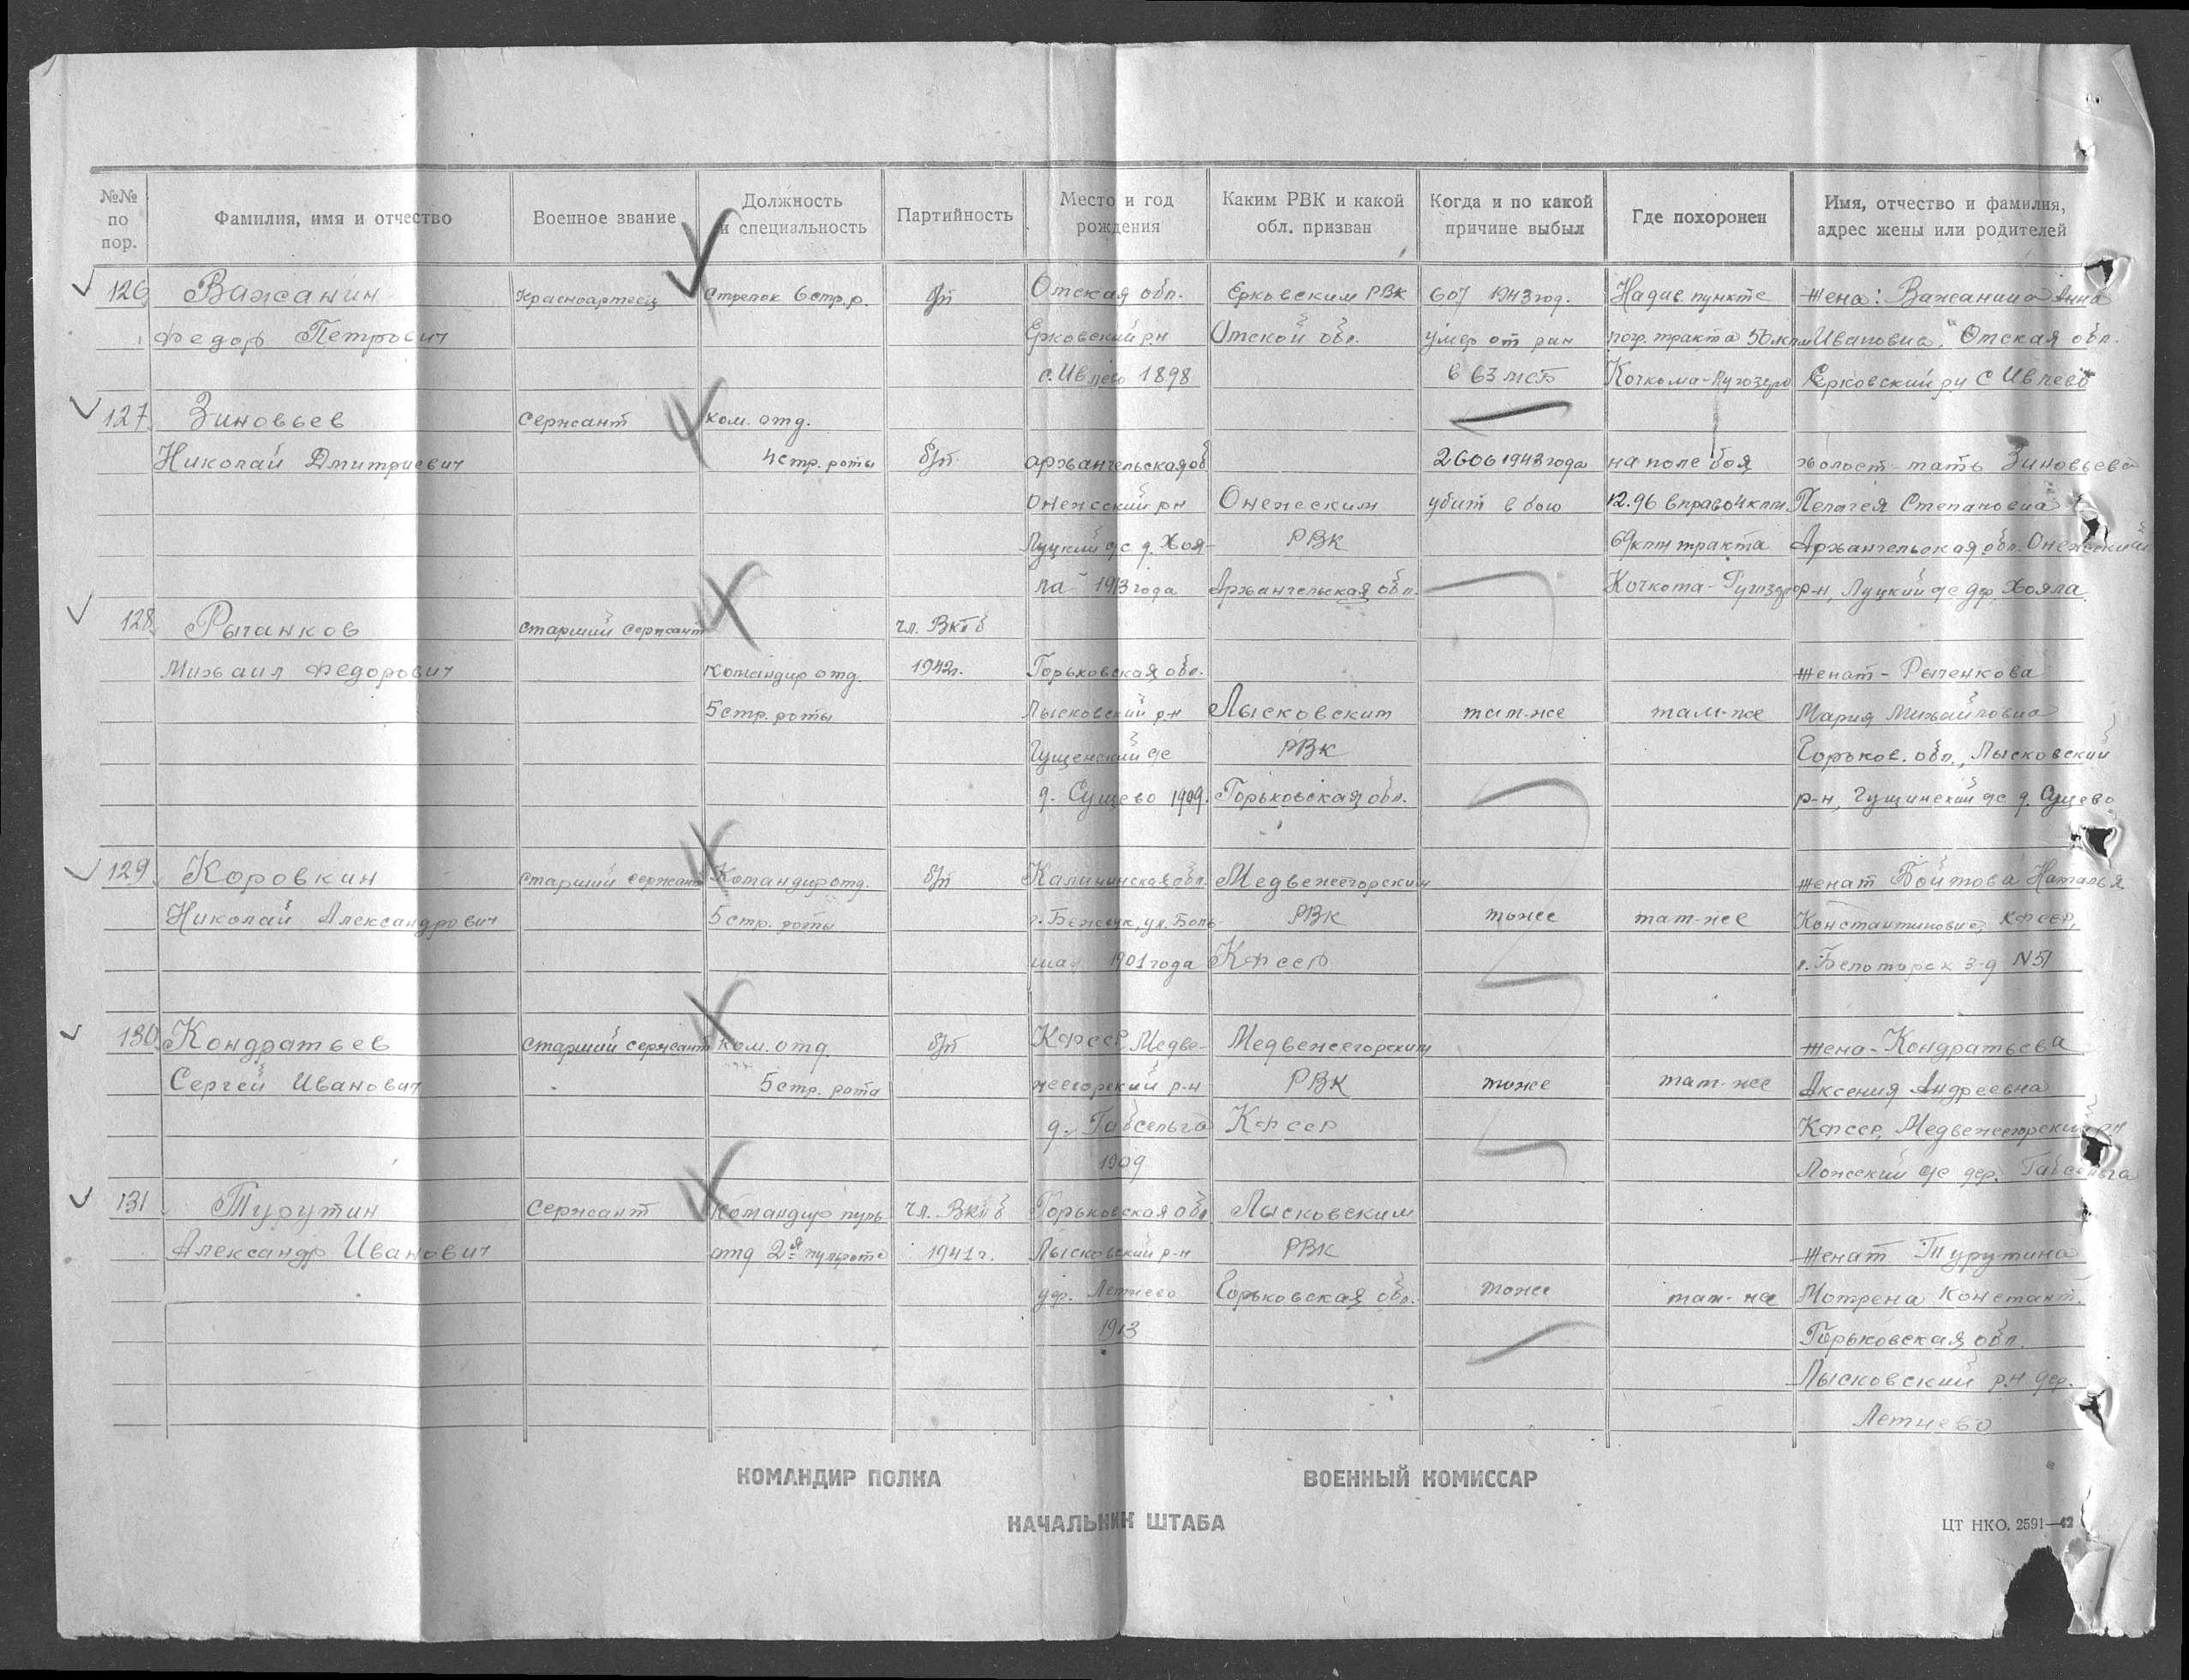 №№ по пор.
Фамилия, имя и отчество
Военное звание
Должность и специальность
Партийность
Место и год рождения
Каким РВК и какой обл. призван
Когда и по какой причине выбыл
Где похоронен
Имя, отчество и фамилия, адрес жены или родителей
126 Важанин Красноармеец Стрелок 6 стр. р. б/п Омская обл. РВК 1943 год. жена: Важанина Анна
Федор Петрович Омской обл. умер от ран Ивановна, Омская обл.
1898 в 63 МСБ
127 Зиновьев Сержант ком. отд.
Николай Дмитриевич 4 стр. роты б/п архангельская об 2606 1943 года на поле боя холост мать Зиновьева
Онежский рн Онежским убит в бою 12.96 Пелагея Степановна
Луцкий с/с д. Хоя- РВК 69 клм тракта Архангельская обл. Онежский
ла 1913 года Архангельская обл. р-н, Луцкий с/с дер. Хояла
128 старший сержант чл. ВКПб
Михаил Федорович командир отд. 1942 г. Горьковская обл. женат -
5 стр. роты Лысковский р-н Лысковским там-же там-же Мария Михайловна
с/с РВК Горьков. обл., Лысковский
д. Сущево 1909. Горьковская обл. р-н, с/с д. Сущево
129 Коровкин старший сержант Командир отд. б/п Калининская обл. Медвежегорским женат Наталья
Николай Александрович 5 стр. роты РВК тоже там-же Константиновна, КФССР,
шая 1901 года КФССР г. Беломорск з-д
130 Кондратьев старший сержант ком. отд. б/п КФССР Медве- Медвежегорским жена - Кондратьева
Сергей Иванович 5 стр. рота жегорский р-н РВК тоже там-же Аксения Андреевна
д. Габсельга КФССР КФССР, Медвежегорский рн
1909 с/с дер. Габсельга
131 Турутин Сержант Командир пуль чл. ВКПб Горьковская обл Лысковским
Александр Иванович отд 2я пульроты 1941 г. Лысковский р-н РВК женат Турутина
Летнево Горьковская обл. тоже там-же Мотрена Констант.
1913 Горьковская обл.
Лысковский р-н дер.
Летнево
КОМАНДИР ПОЛКА
ВОЕННЫЙ КОМИССАР
НАЧАЛЬНИК ШТАБА
ЦТ НКО. 2591—42